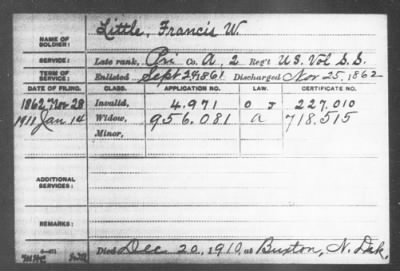 NAME OF SOLDIER: Little, Francis W.
SERVICE: Late rank, Pri Co. A, 2 Reg't U.S. Vol S.S.
TERM OF SERVICE: Enlisted Sept 29, 1861 Discharged Nov 25, 1862
DATE OF FILING. CLASS. APPLICATION NO. LAW. CERTIFICATE NO.
1862 Nov 28 Invalid, 4.971 O J 227.010
1911 Jan 14 Widow, 956.081 a 718.515
Minor,
ADDITIONAL SERVICES:
REMARKS:
Died Dec 20, 1910, at Buxton, N. Dak,